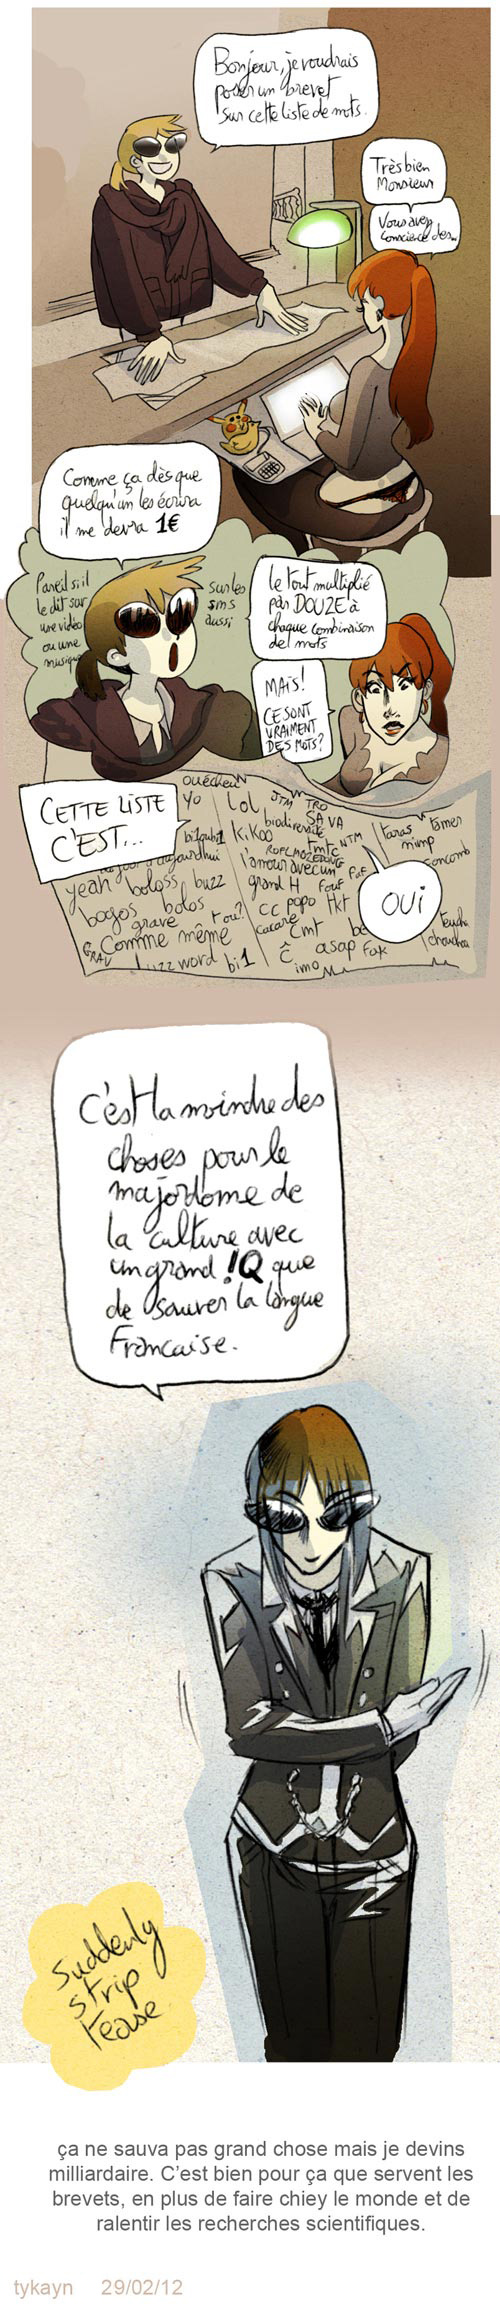 Bonjour, je voudrais
poser un brevet
sur cette liste de mots.
Très bien
Monsieur
Vous avez
conscience des...
Comme ça dès que
quelqu'un les écrira
il me devra 1€
Pareil si il
le dit sur
une vidéo
ou une
musique
sur les
sms
aussi
le tout multiplié
par DOUZE à
chaque combinaison
de mots
MAIS!
CE SONT
VRAIMENT
DES MOTS?
CETTE LISTE
C'EST...
ouéchew
yo
lol
JTM
TRO
SA VA
biodiversité
kikoo
tmtc
NTM
taras
mimp
concomb
ROFLMOZEDONG
l'amour avec un
grand H
fouf
FaF
yeah boloss buzz
bogos
bolos
grave
GRAV
Comme même
buzz word bi1
cc popo
Hkt
cacaré
cmt
ĉ
asap
Fak
imo
chouchou
OUI
C'est la moindre des
choses pour le
majordome de
la culture avec
un grand !Q que
de sauver la langue
Française.
suddenly
strip
tease
ça ne sauva pas grand chose mais je devins
milliardaire. C'est bien pour ça que servent les
brevets, en plus de faire chiey le monde et de
ralentir les recherches scientifiques.
tykayn 29/02/12